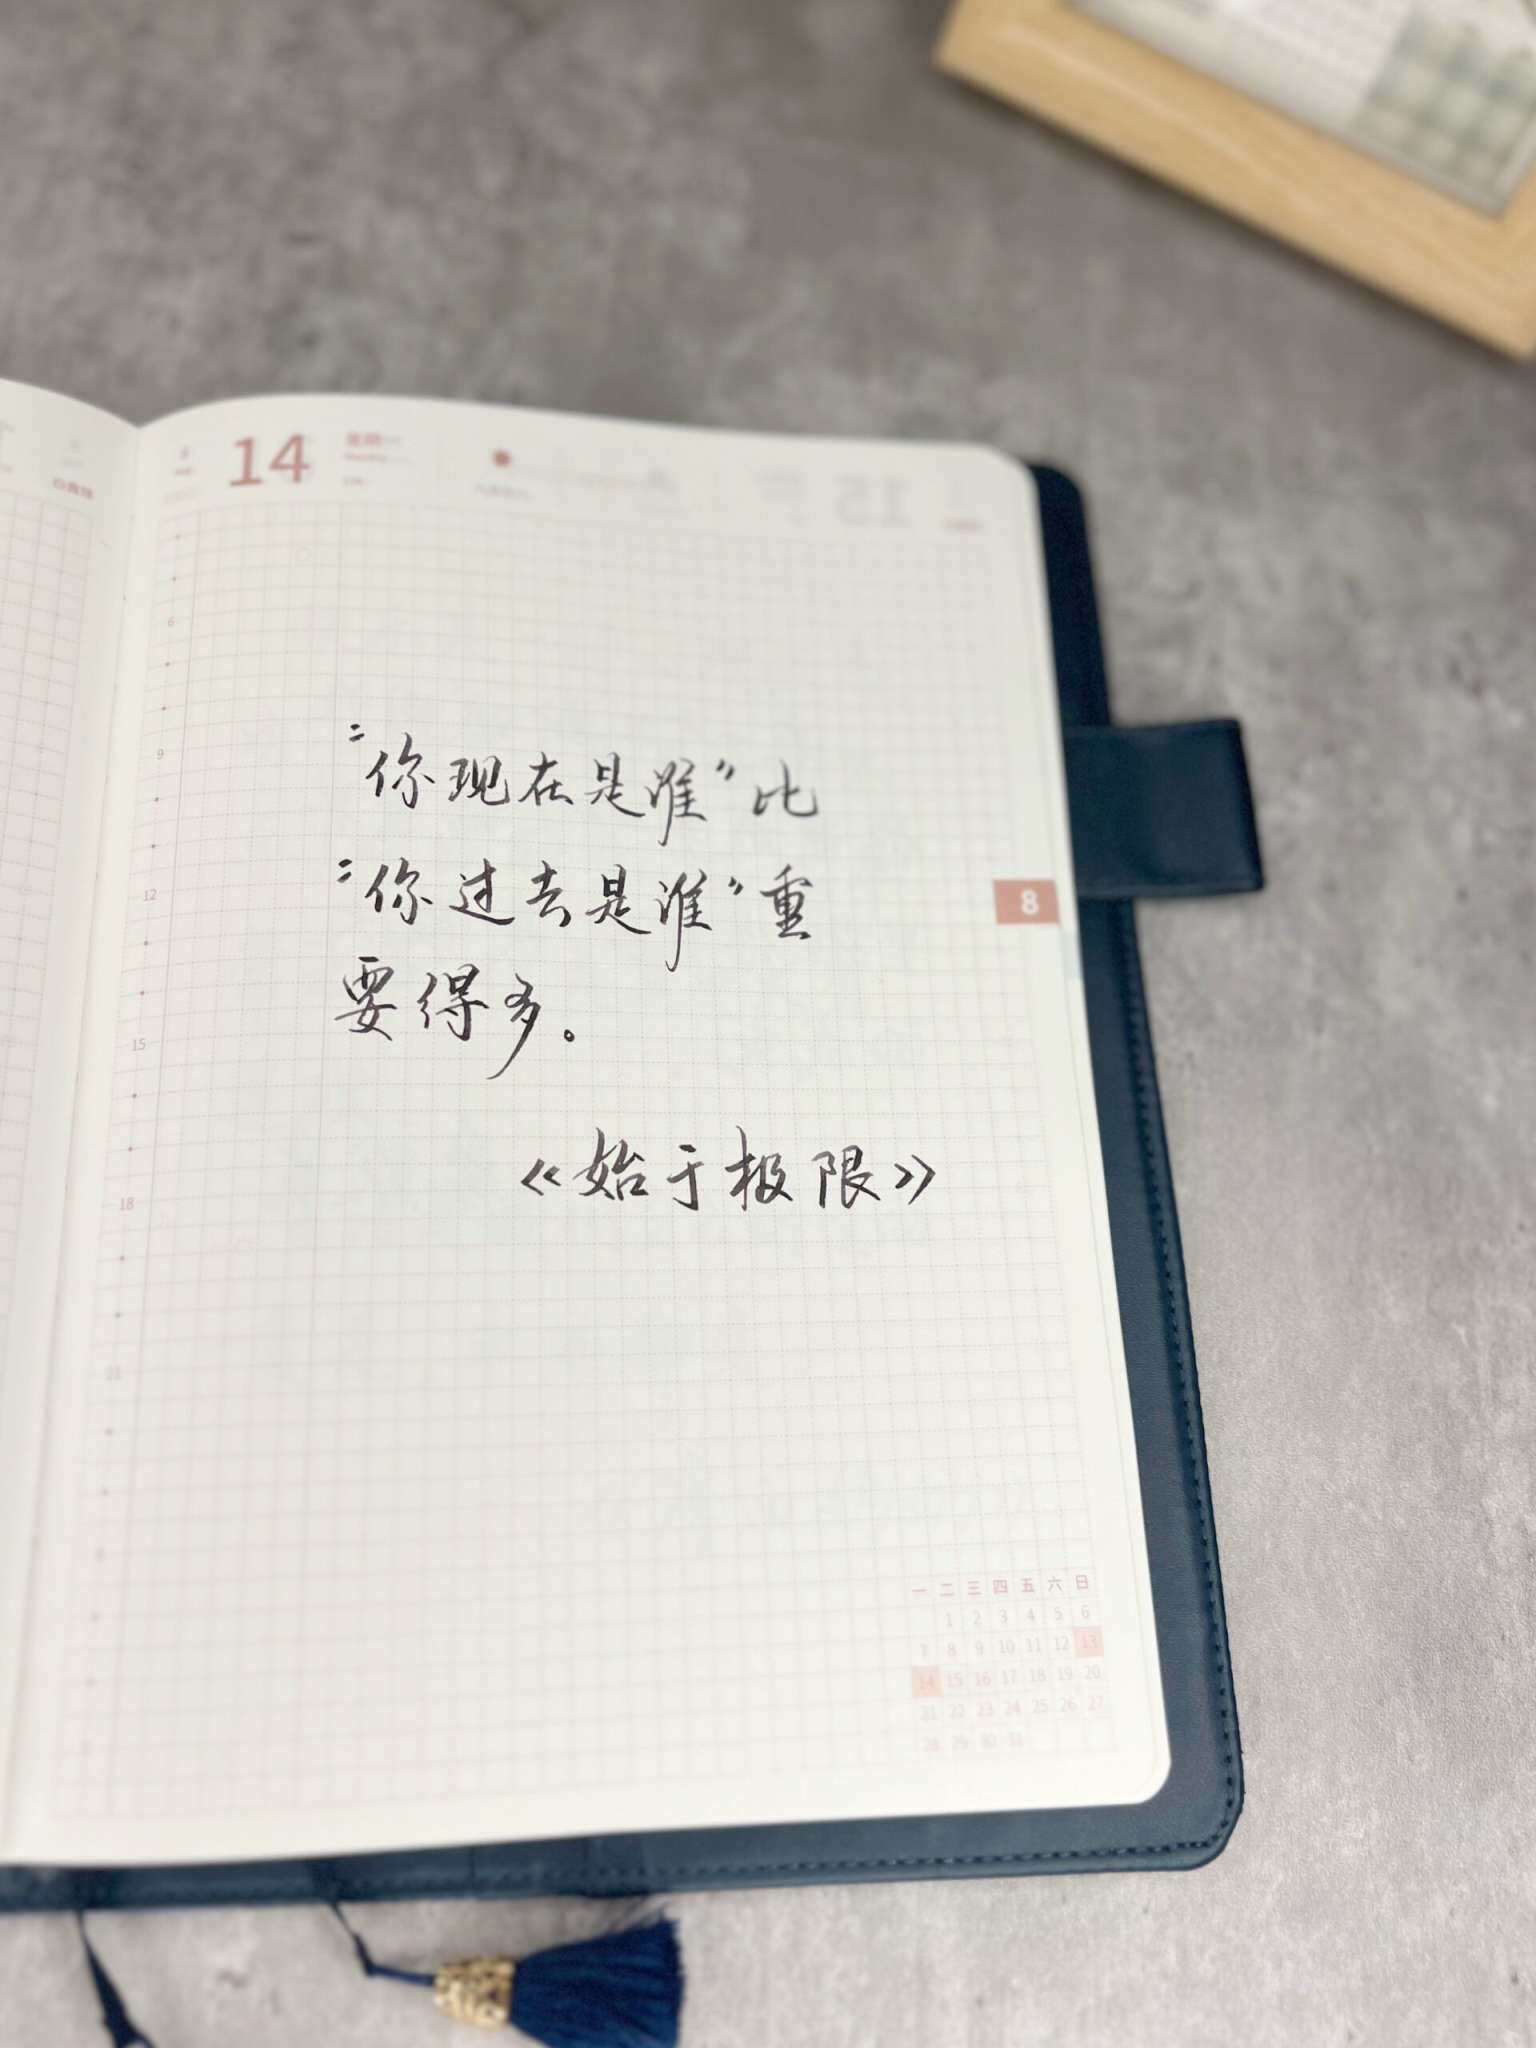 14
星期一
“你现在是谁”比
“你过去是谁”重
要得多。
《始于极限》
6
9
12
15
18
21
8
一 二 三 四 五 六 日
1 2 3 4 5 6
7 8 9 10 11 12 13
14 15 16 17 18 19 20
21 22 23 24 25 26 27
28 29 30 31